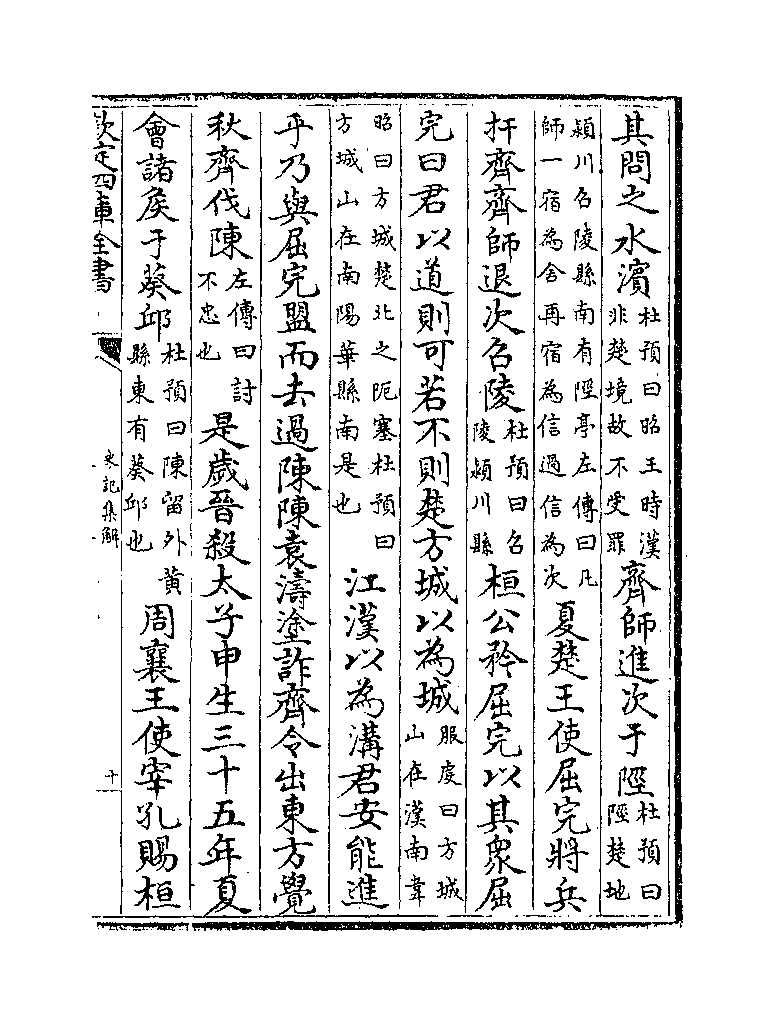 其問之水濱杜預曰昭王時漢非楚境故不受罪齊師進次于陘杜預曰陘楚地
潁川召陵縣南有陘亭左傳曰凡師一宿為舍再宿為信過信為次夏楚王使屈完將兵
扞齊齊師退次召陵杜預曰召陵潁川縣桓公矜屈完以其衆屈
完曰君以道則可若不則楚方城以為城服虔曰方城山在漢南韋
昭曰方城楚北之阨塞杜預曰方城山在南陽葉縣南是也江漢以為溝君安能進
乎乃與屈完盟而去過陳陳袁濤塗詐齊令出東方覺
秋齊伐陳左傳曰討不忠也是歲晉殺太子申生三十五年夏
會諸侯于葵邱杜預曰陳留外黄縣東有葵邱也周襄王使宰孔賜桓
欽定四庫全書
史記集解
十